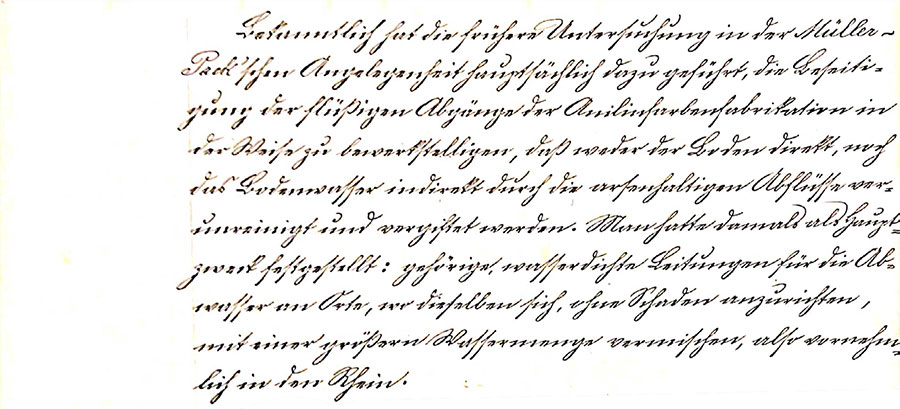 Bekanntlich hat die frühere Untersuchung in der Müller-
Pack'schen Angelegenheit hauptsächlich dazu geführt, die Beseiti-
gung der flüßigen Abgänge der Anilinfarbenfabrikation in
der Weise zu bewerkstelligen, daß weder der Boden direkt, noch
das Bodenwasser indirekt durch die arsenhaltigen Abflüsse ver-
unreinigt und vergiftet werden. Man hatte damals als Haupt-
zweck festgestellt: gehörige, wasserdichte Leitungen für die Ab-
wasser an Orte, wo dieselben sich, ohne Schaden anzurichten,
mit einer größern Wassermenge vermischen, also vornehm-
lich in den Rhein.